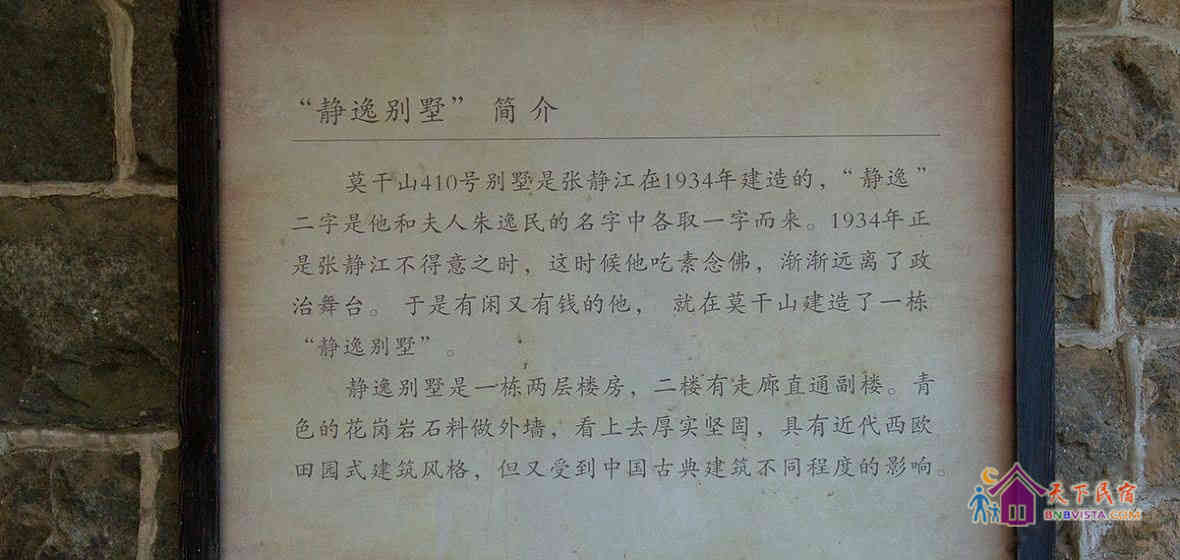 “静逸别墅” 简介
莫干山410号别墅是张静江在1934年建造的，“静逸”
二字是他和夫人朱逸民的名字中各取一字而来。1934年正
是张静江不得意之时，这时候他吃素念佛，渐渐远离了政
治舞台。于是有闲又有钱的他，就在莫干山建造了一栋
“静逸别墅”。
静逸别墅是一栋两层楼房，二楼有走廊直通副楼。青
色的花岗岩石料做外墙，看上去厚实坚固，具有近代西欧
田园式建筑风格，但又受到中国古典建筑不同程度的影响。
天下民宿
BNBVISTA.COM